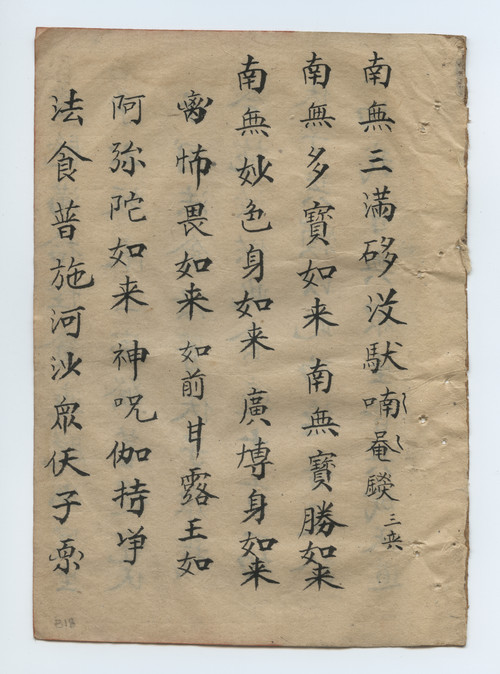 南無三滿哆没馱喃〻菴〻𩖅三䢎
南無多寶如来南無寶勝如来
南無妙色身如来廣博身如来
离怖畏如来如前甘露王如
阿弥陀如来神呪伽持净
法食普施河沙衆仸子原
818